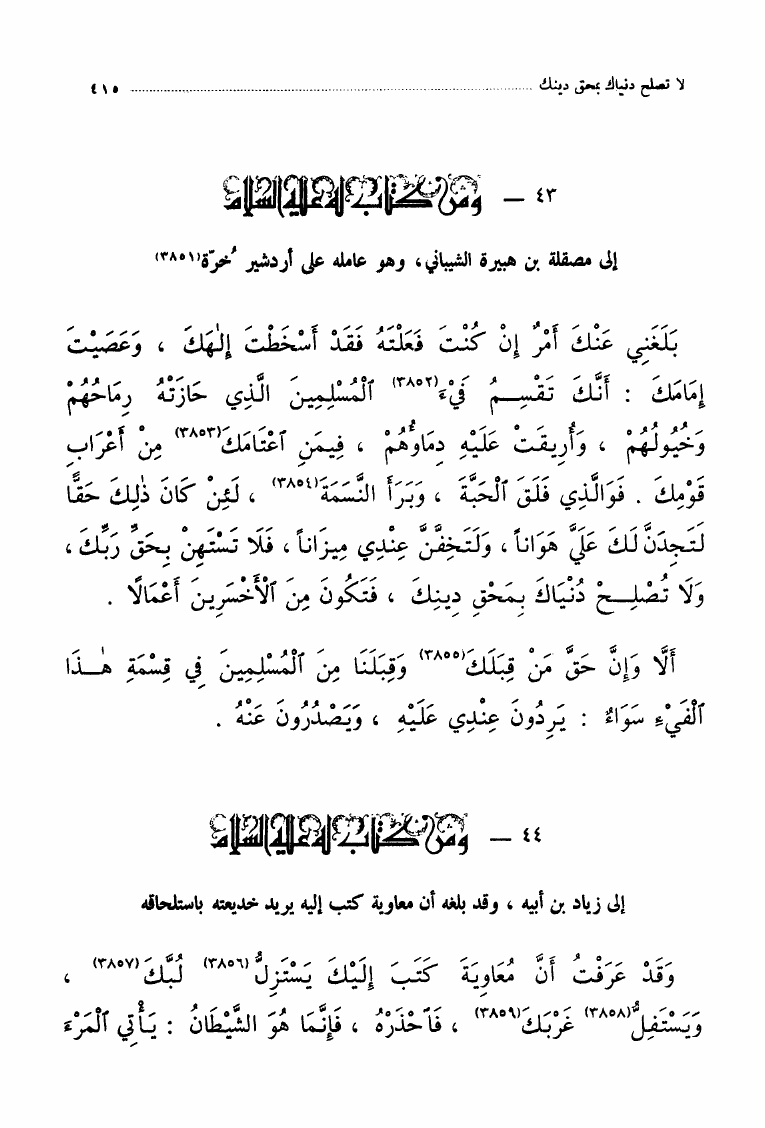 لا تصلح دنياك بمحق دينك ........ ٤١٥
٤٣ – ومن كتاب له عليه السلام
إلى مصقلة بن هبيرة الشيباني، وهو عامله على أردشير خُرّة(٣٨٥١)
بَلَغَنِي عَنْكَ أَمْرٌ إِنْ كُنْتَ فَعَلْتَهُ فَقَدْ أَسْخَطْتَ إِلٰهَكَ ، وَعَصَيْتَ
إِمَامَكَ : أَنَّكَ تَقْسِمُ فَيْءَ(٣٨٥٢) ٱلْمُسْلِمِينَ الَّذِي حَازَتْهُ رِمَاحُهُمْ
وَخُيُولُهُمْ ، وَأُرِيقَتْ عَلَيْهِ دِمَاؤُهُمْ ، فِيمَنِ ٱعْتَامَكَ(٣٨٥٣) مِنْ أَعْرَابِ
قَوْمِكَ . فَوَالَّذِي فَلَقَ ٱلْحَبَّةَ ، وَبَرَأَ النَّسَمَةَ(٣٨٥٤) ، لَئِنْ كَانَ ذٰلِكَ حَقًّا
لَتَجِدَنَّ لَكَ عَلَيَّ هَوَاناً ، وَلَتَخِفَّنَّ عِنْدِي مِيزَاناً ، فَلَا تَسْتَهِنْ بِحَقِّ رَبِّكَ ،
وَلَا تُصْلِحْ دُنْيَاكَ بِمَحْقِ دِينِكَ ، فَتَكُونَ مِنَ ٱلْأَخْسَرِينَ أَعْمَالًا .
أَلَا وَإِنَّ حَقَّ مَنْ قِبَلَكَ(٣٨٥٥) وَقِبَلَنَا مِنَ ٱلْمُسْلِمِينَ فِي قِسْمَةِ هٰذَا
ٱلْفَيْءِ سَوَاءٌ : يَرِدُونَ عِنْدِي عَلَيْهِ ، وَيَصْدُرُونَ عَنْهُ .
٤٤ – ومن كتاب له عليه السلام
إلى زياد بن أبيه ، وقد بلغه أن معاوية كتب إليه يريد خديعته باستلحاقه
وَقَدْ عَرَفْتُ أَنَّ مُعَاوِيَةَ كَتَبَ إِلَيْكَ يَسْتَزِلُّ(٣٨٥٦) لُبَّكَ(٣٨٥٧) ،
وَيَسْتَفِلُّ(٣٨٥٨) غَرْبَكَ(٣٨٥٩) ، فَٱحْذَرْهُ ، فَإِنَّمَا هُوَ الشَّيْطَانُ : يَأْتِي ٱلْمَرْءَ